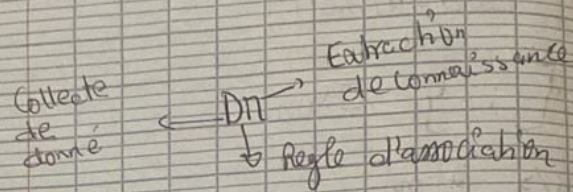 Collecte
de
donné
Dn
Extraction
de connaissance
Regle d'association